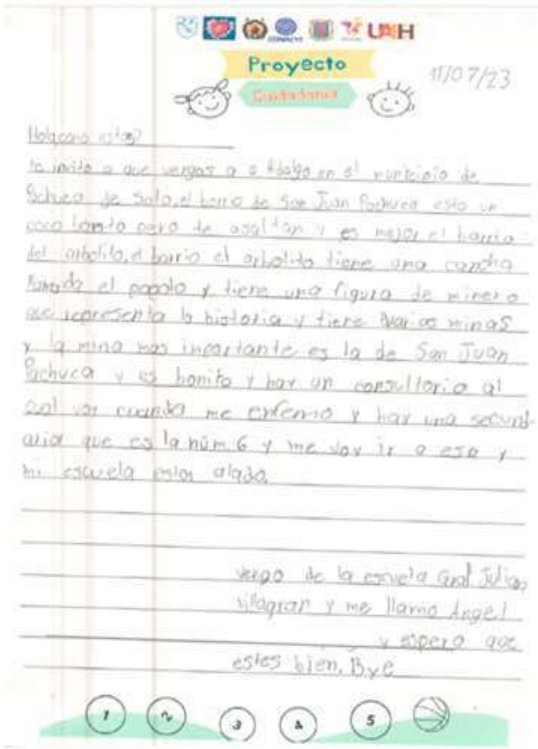 CONACYT UAEH
Proyecto
Ciudadanía
11/07/23
Hola como estas?
te invito a que vengas a Hidalgo en el municipio de
Pachuca de Soto, el barrio de San Juan Pachuca esta un
poco bonito pero te asaltan y es mejor el barrio
del arbolito, el barrio el arbolito tiene una cancha
llamada el y tiene una figura de minero
que representa la historia y tiene varias minas
y la mina mas importante es la de San Juan
Pachuca y es bonito y hay un consultorio al
cual voy cuando me enfermo y hay una secund
aria que es la núm. 6 y me voy ir a esa y
mi escuela esta alado.
vengo de la escuela Gral Julian
villagran y me llamo Angel
y espero que
estes bien. Bye
1 2 3 4 5